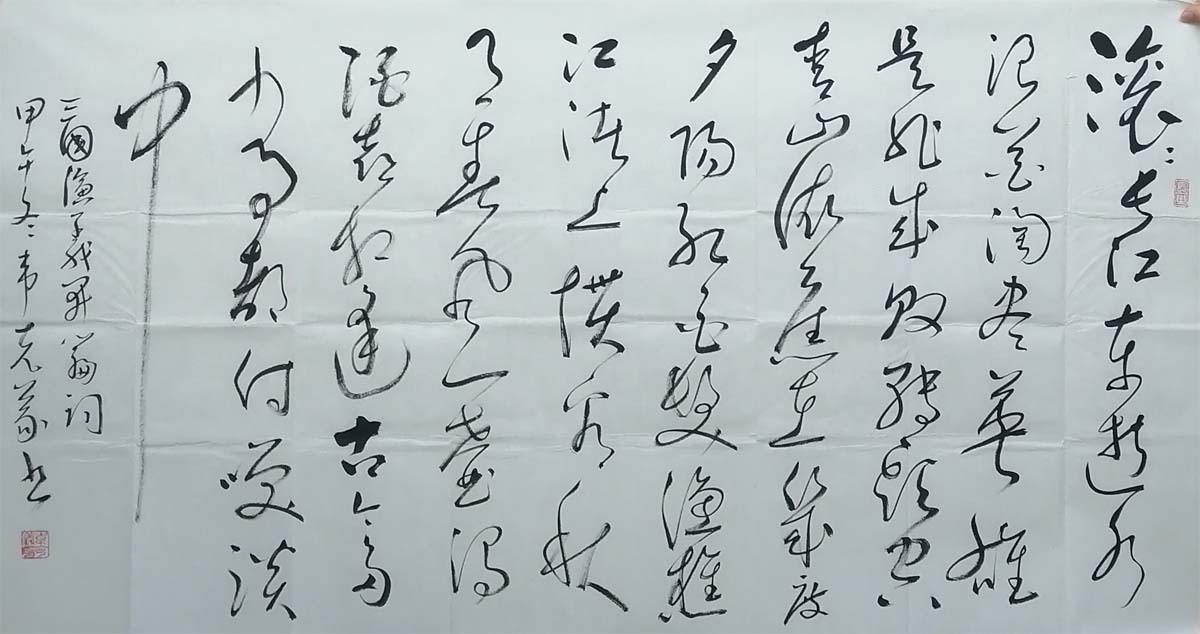 滚〻长江东逝水
浪花淘尽英雄
是非成败转头空
青山依旧在几度
夕阳红白髮渔樵
江渚上惯看秋
月春风一壶浊
酒喜相逢古今多
少事都付笑谈
中
三國演义开篇词
甲午冬韦克义书